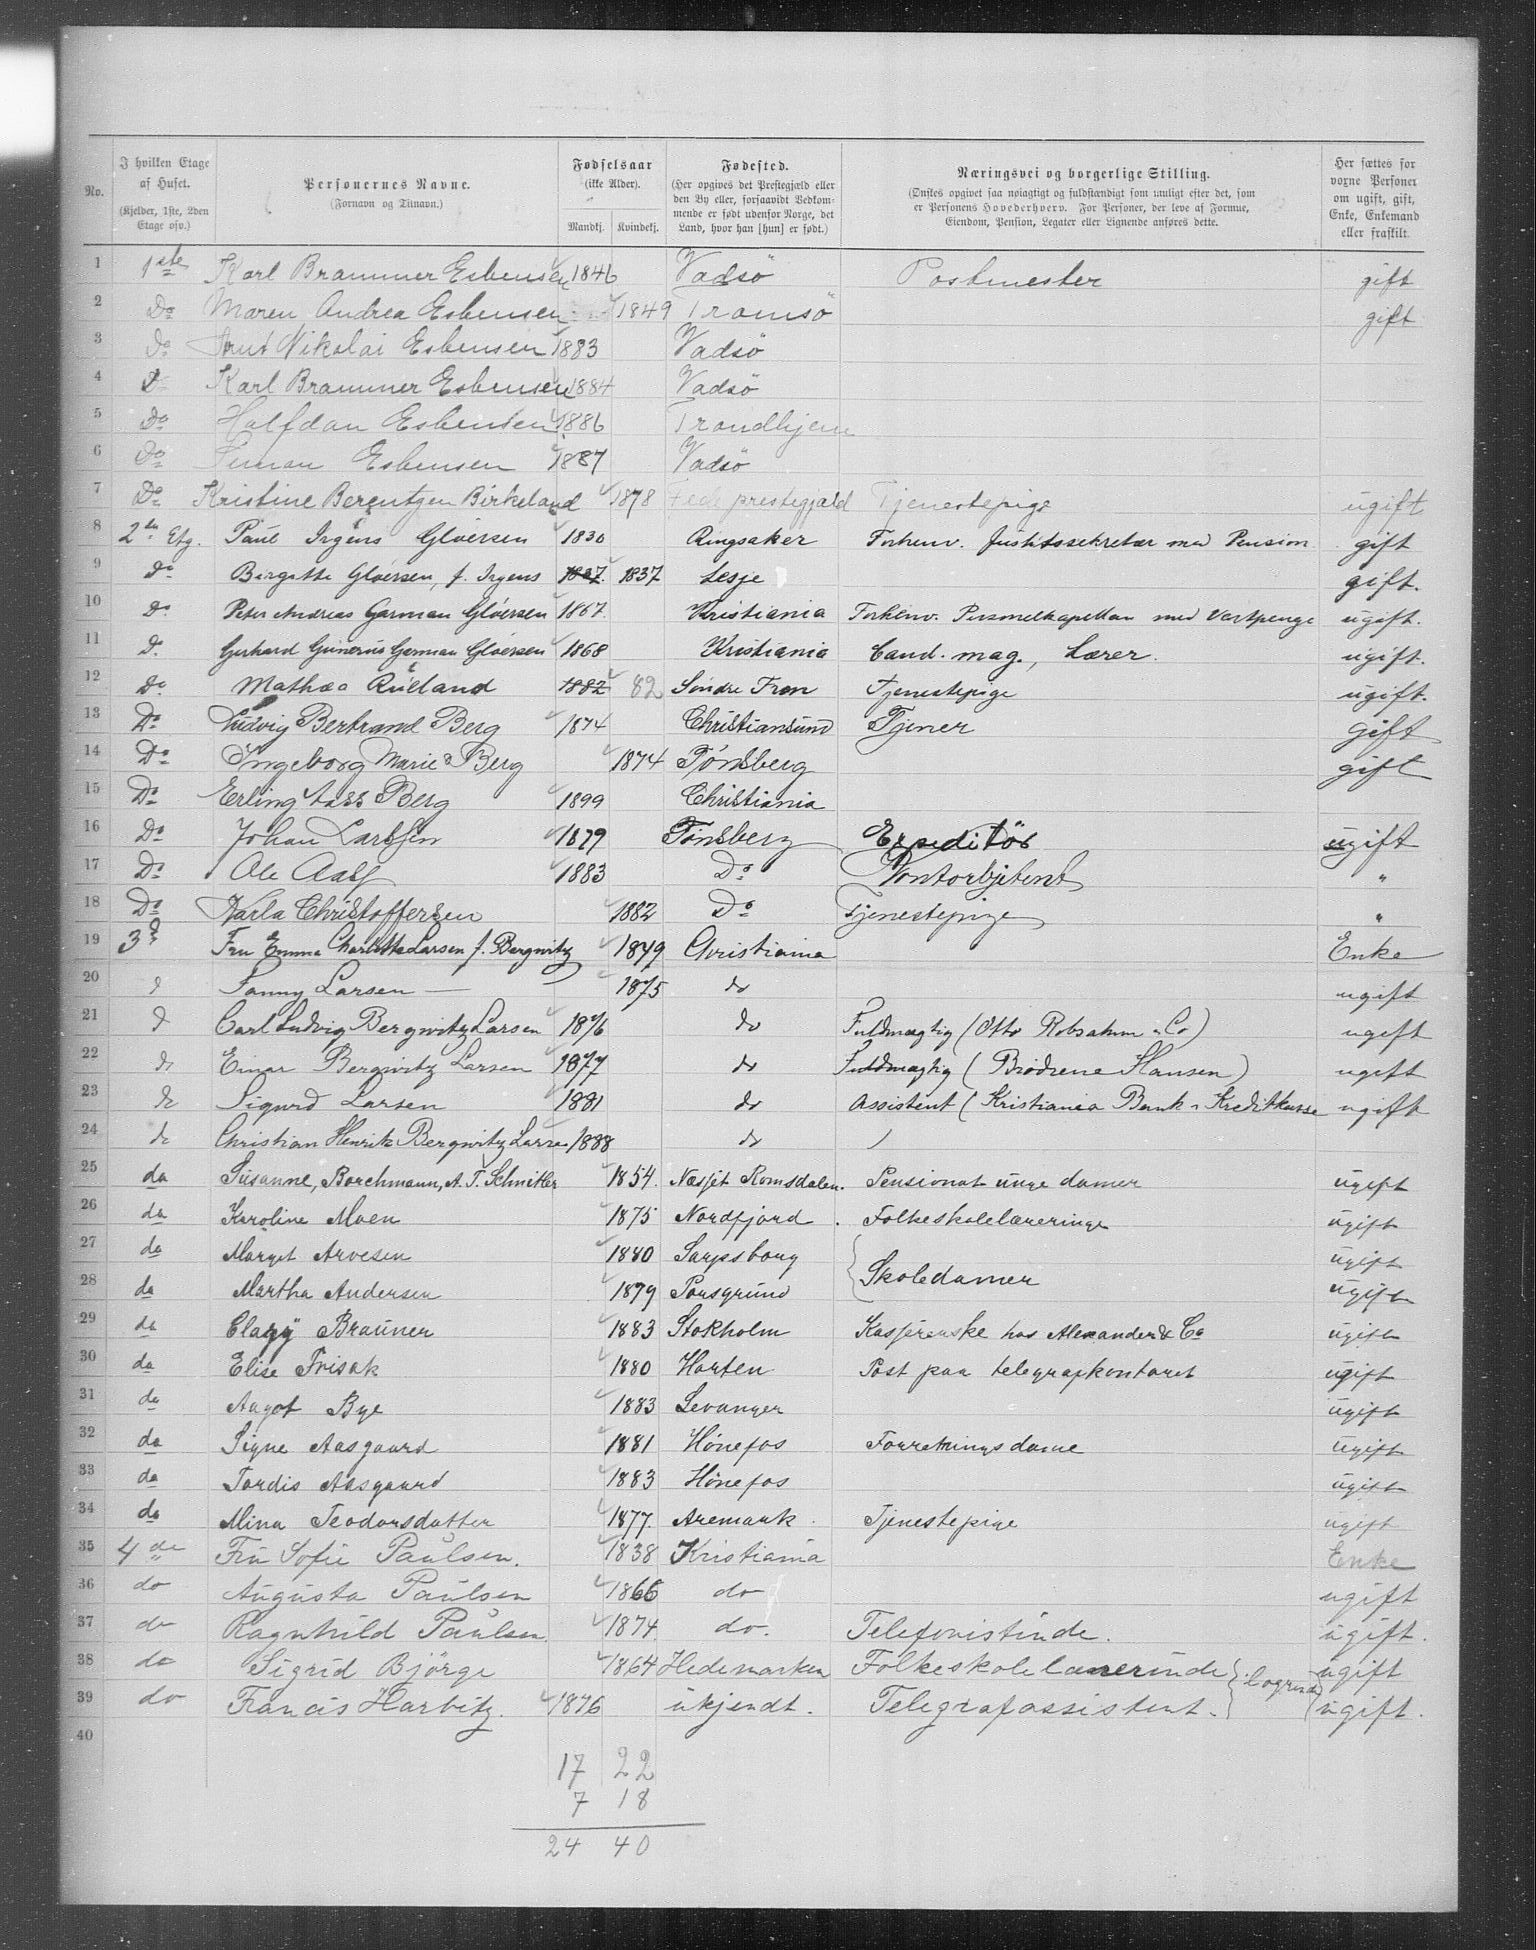 No.
I hvilken Etage af Huset. (Kjelder, 1ste, 2den Etage osv.)
Personernes Navne. (Fornavn og Tilnavn.)
Fødselsaar (ikke Alder). Mandkj. Kvindekj.
Fødested. (Her opgives det Prestegjæld eller den By eller, forsaavidt Vedkommende er født udenfor Norge, det Land, hvor han [hun] er født.)
Næringsvei og borgerlige Stilling. (Ønskes opgivet saa nøiagtigt og fuldstændigt som muligt efter det, som er Personens Hovederhverv. For Personer, der leve af Formue, Eiendom, Pension, Legater eller Lignende anføres dette.
Her sættes for voxne Personer om ugift, gift, Enke, Enkemand eller fraskilt.
1 1ste Karl Brammer Esbensen 1846 Vadsö Postmester gift
2 Do Maren Andrea Esbensen 1849 Tromsö gift
3 do Nikolai Esbensen 1883 Vadsö
4 D Karl Brammer Esbensen 1884 Vadsö
5 Do Halfdan Esbensen 1886 Trondhjem
6 Do Esbensen 1887 Vadsö
7 Do Kristine Berentzen Birkeland 1878 prestegjæld Tjenestepige ugift
8 2den Etg. Paul Irgens Gløersen 1830 Ringsaker Forhenv. Justitssekretær med Pension gift
9 do Birgitte Gløersen, f. Irgens 1837. 1837 Lesje gift.
10 Do Peter Andreas Garman Gløersen 1867. Kristiania Forhenv. Personelkapellan med Vartpenge ugift.
11 D. Gerhard Gunerius Garman Gløersen 1868 Kristiania Cand. mag., Lærer. ugift.
12 Do Mathea Rueland 1882 82 Søndre Fron Tjenestepige ugift.
13 Do Ludvig Bertrand Berg 1874 Christiansund Tjener gift
14 Do Ingeborg Marie Berg 1874 Tønsberg gift
15 Do Erling Aass Berg 1899 Christiania
16 Do Johan Larssen 1879 Tønsberg Expeditör ugift
17 Do Ole Aass 1883 Do Kontorbetjent "
18 Do Karla Christoffersen 1882 Do Tjenestepige "
19 3d Fru Emma Charlotte Larsen f. Bergwitz 1849 Christiania Enke
20 d Fanny Larsen — 1875 do ugift
21 d Carl Ludvig Bergwitz Larsen 1876 do Fuldmægtig (Otto Robsahm & Co) ugift
22 do Einar Bergwitz Larsen 1877 do Fuldmægtig (Brødrene Hansen) ugift
23 do Sigurd Larsen 1881 do Assistent (Kristiania Bank & Kreditkasse ugift
24 do Christian Henrik Bergwitz Larsen 1888 do
25 do Susanne, Borchmann, A. T. Schnitler 1854. Næsjet Romsdalen. Pensionat unge damer ugift
26 do Karoline Moen 1875 Nordfjord. Folkeskolelæreringe ugift
27 do Marget Arvesen 1880 Sarpsborg ugift
28 do Martha Andersen 1879 Porsgrund Skoledamer ugift
29 do Clary Brauner 1883 Stokholm Kasjererske hos Alexander & Co ugift
30 do Elise Frisak 1880 Horten Post paa telegrafkontoret ugift
31 do Aagot Bye 1883 Levanger ugift
32 do Signe Aasgaard 1881 Hønefos Forretningsdame ugift
33 do Tordis Aasgaard 1883 Hønefos ugift
34 do Mina Teodorsdatter 1877. Aremark. Tjenestepige ugift
35 4de Fru Sofie Paulsen. 1838 Kristiania Enke
36 do Augusta Paulsen 1866 do ugift
37 do Ragnhild Paulsen 1874 do. Telefonistinde. ugift.
38 do Sigrid Bjørge 1864 Hedemarken Folkeskolelærerinde ugift
39 do Francis Harbitz. 1876 ukjendt. Telegrafassistent. ugift.
40
17 22
7 18
24 40